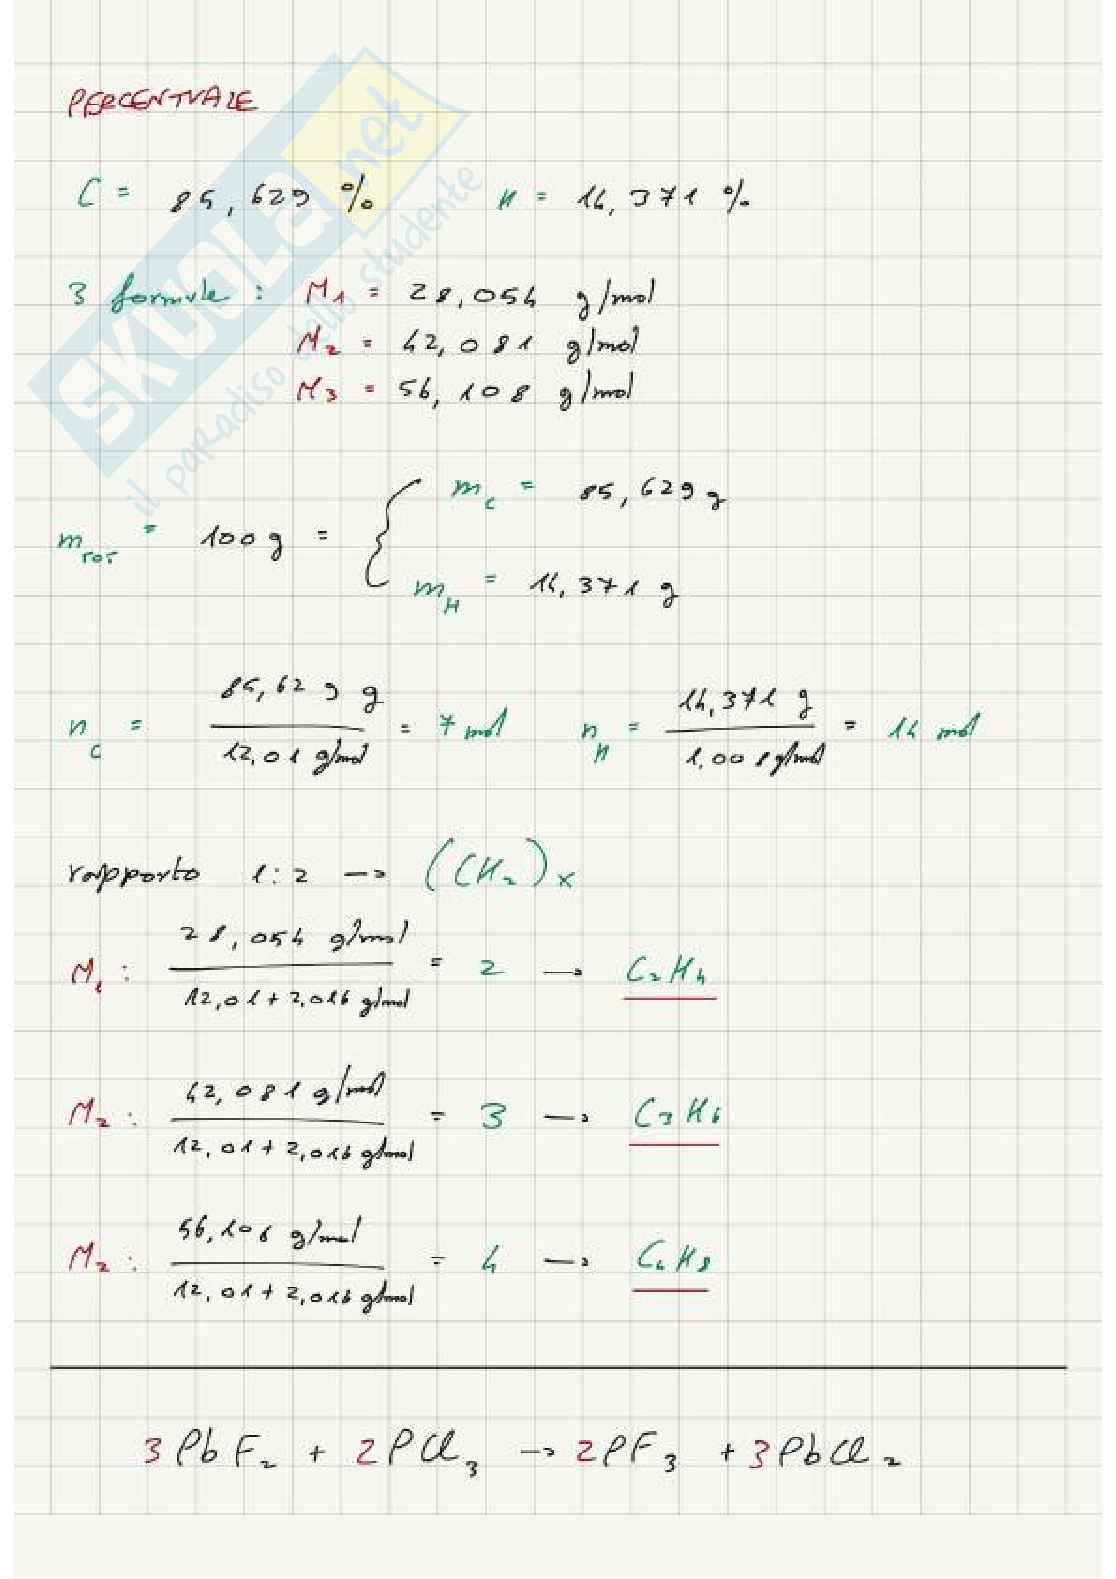 PERCENTUALE
C = 85,629 % H = 14,371 %
3 formule : M1 = 28,054 g/mol
M2 = 42,081 g/mol
M3 = 56,108 g/mol
mC = 85,629 g
mTOT = 100 g =
mH = 14,371 g
nC = 85,629 g / 12,01 g/mol = 7 mol nH = 14,371 g / 1,008 g/mol = 14 mol
rapporto 1:2 → (CH2)x
M1 : 28,054 g/mol / 12,01 + 2,016 g/mol = 2 → C2H4
M2 : 42,081 g/mol / 12,01 + 2,016 g/mol = 3 → C3H6
M2 : 56,108 g/mol / 12,01 + 2,016 g/mol = 4 → C4H8
3 PbF2 + 2 PCl3 → 2 PF3 + 3 PbCl2
SKUOLA.net
il paradiso dello studente